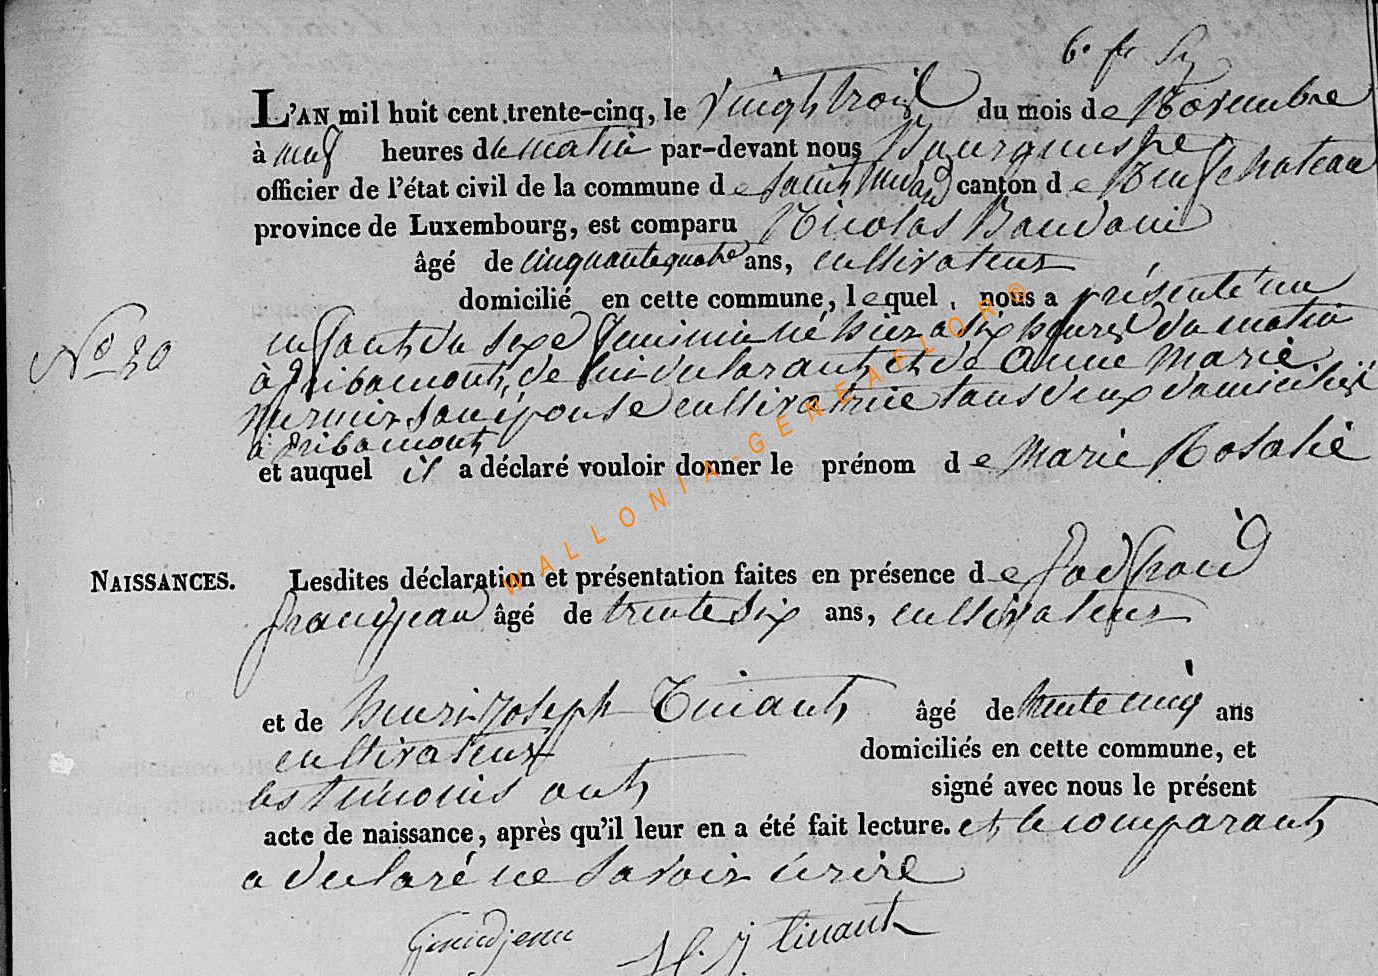 L'AN mil huit cent trente-cinq, le vingt trois du mois de Novembre
à neuf heures du matin par-devant nous
officier de l'état civil de la commune de Saint Médard canton de Neufchateau
province de Luxembourg, est comparu Nicolas Baudoin
âgé de cinquante quatre ans, cultivateur
domicilié en cette commune, lequel, nous a présenté un
No 30 enfant du sexe feminin né hier a six heures du matin
à Gribomont, de lui declarant et de Anne Marie
son épouse cultivatrice tous deux domiciliés
à Gribomont
et auquel il a déclaré vouloir donner le prénom de Marie Rosalie
NAISSANCES. Lesdites déclaration et présentation faites en présence de
âgé de trente six ans, cultivateur
et de henri Joseph Tinant âgé de trente cinq ans
cultivateur domiciliés en cette commune, et
les témoins ont signé avec nous le présent
acte de naissance, après qu'il leur en a été fait lecture. et le comparant
a declaré ne savoir écrire
H. J. tinant
WALLONIA-GENEAFLOR®